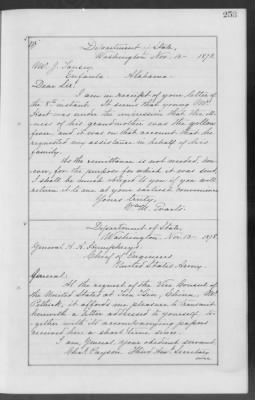 256
Department of State,
Washington Nov. 12 - 1878.
W. J. Tansey
Eufaula Alabama.
Dear Sir:
I am in receipt of your letter of
the 8th instant. It seems that young Mr.
Hart was under the impression that the ill-
ness of his grandmother was the yellow
fever, and it was on that account that he
requested any assistance in behalf of his
family.
As the remittance is not needed, how-
ever, for the purpose for which it was sent,
I shall be much obliged to you if you will
return it to me at your earliest convenience
Yours truly,
Wm. M. Evarts.
Department of State,
Washington, Nov. 12 - 1878.
General A. A. Humphreys
Chief of Engineers
United States Army
General:
At the request of the Vice Consul of
the United States at Tien Tsin, China, Mr.
Pethick, it affords me pleasure to transmit
herewith a letter addressed to yourself to-
gether with its accompanying papers
received here a short time since.
I am, General, your obedient servant,
Chas. Payson Third Asst. Secretary